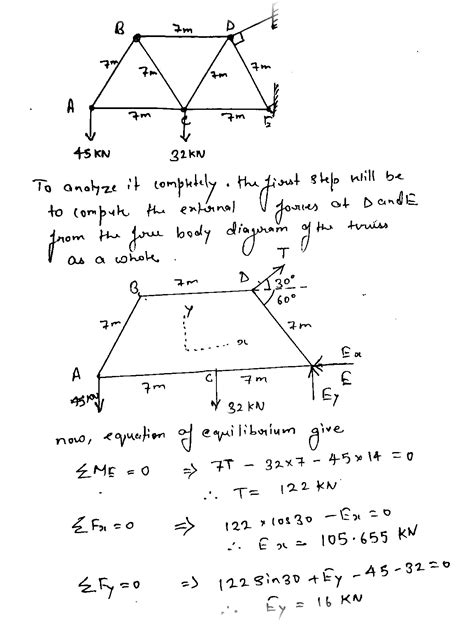 B 7m D
7m 7m 7m 7m
A 7m C 7m E
45 KN 32 KN
To analyze it completely. the first step will be
to compute the external forces at D and E
from the free body diagram of the truss
as a whole.
T
B 7m D 30°
60°
7m y 7m
x
A 7m C 7m Ex
E
45KN 32 KN Ey
now, equation of equilibrium give
ΣME = 0 ⇒ 7T - 32×7 - 45×14 = 0
∴ T = 122 KN
ΣFx = 0 ⇒ 122 × cos 30 - Ex = 0
∴ Ex = 105.655 KN
ΣFy = 0 ⇒ 122 sin 30 + Ey - 45 - 32 = 0
∴ Ey = 16 KN